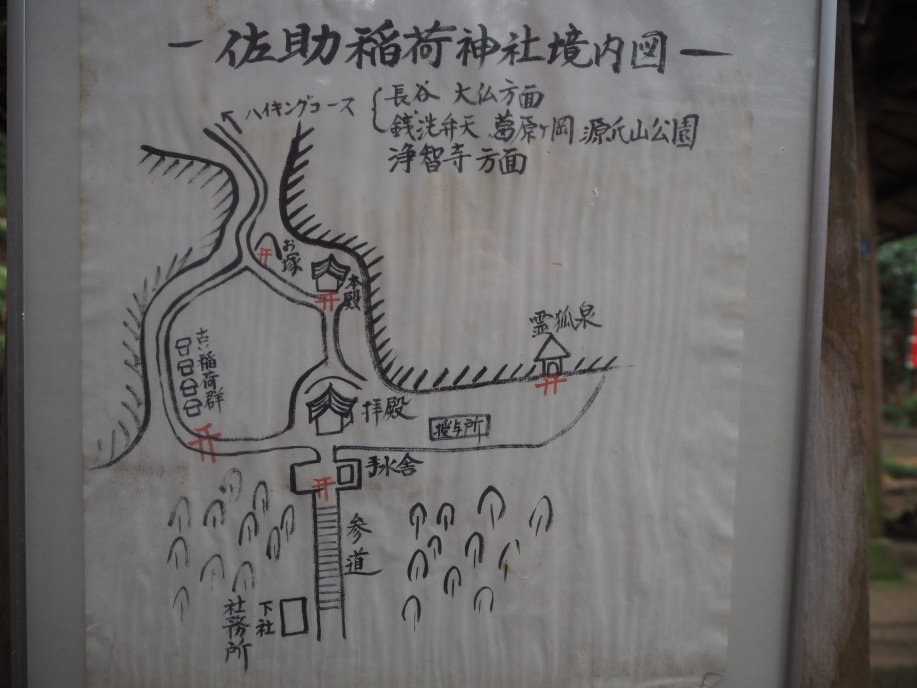 －佐助稲荷神社境内図－
ハイキングコース
長谷 大仏方面
銭洗弁天 葛原ヶ岡 源氏山公園
浄智寺方面
お塚
本殿
霊狐泉
古い稲荷群
拝殿
授与所
手水舎
参道
下社
社務所